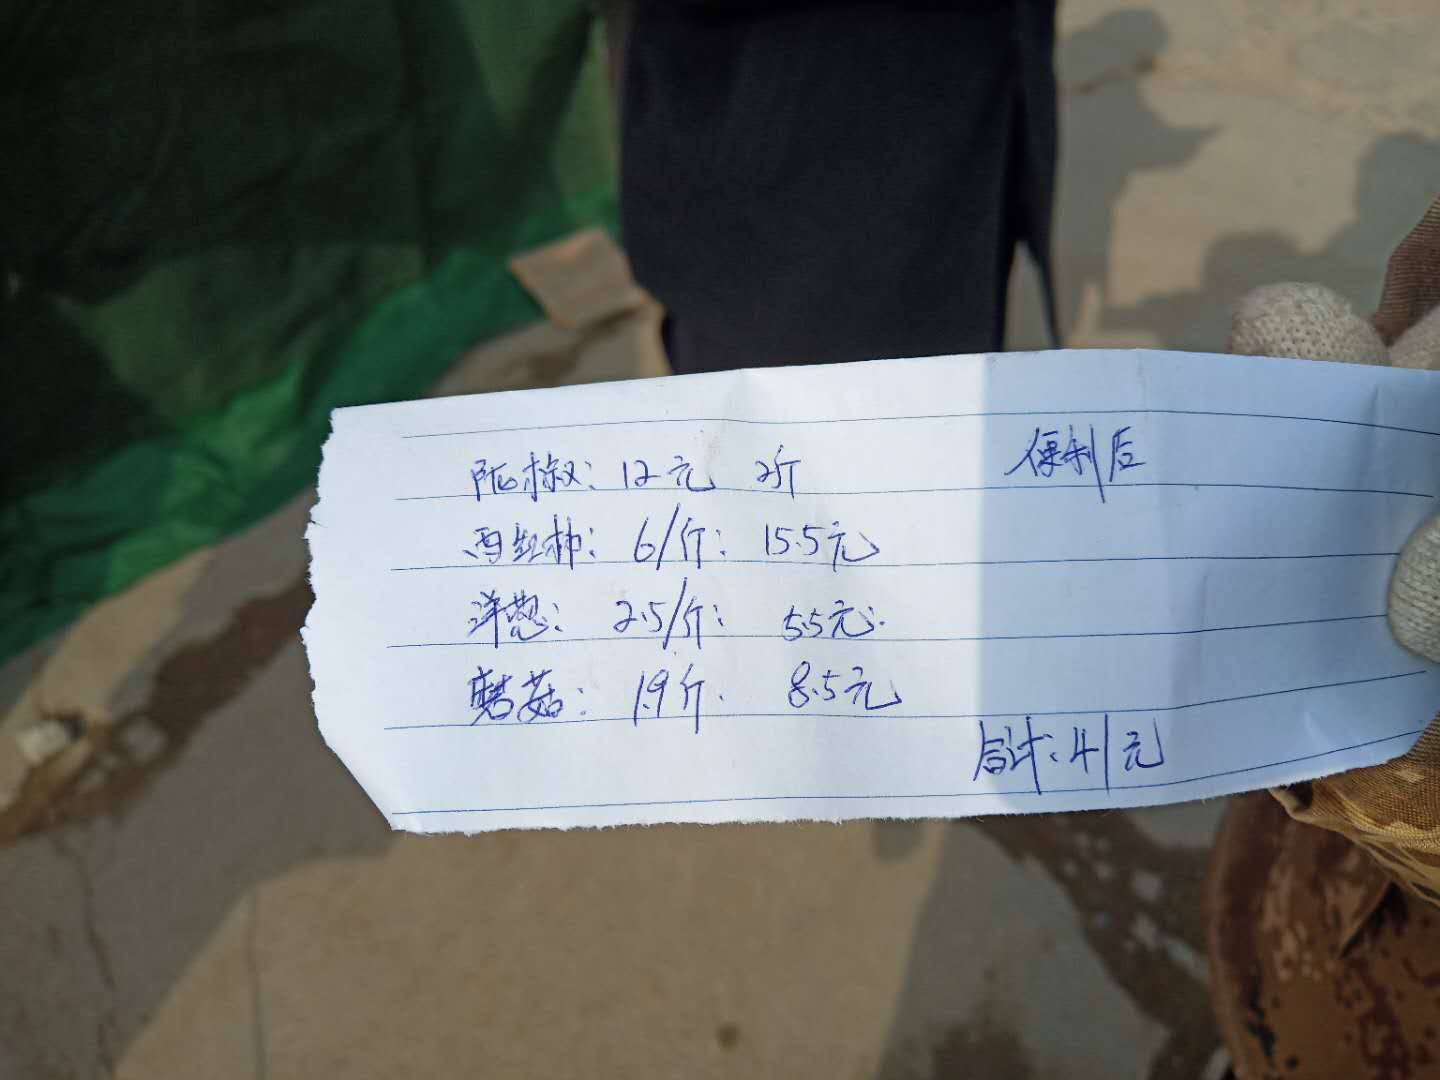 陇椒：12元 2斤 便利后
西红柿：6/斤：15.5元
洋葱：2.5/斤：5.5元.
蘑菇：1.9斤. 8.5元
合计：41元